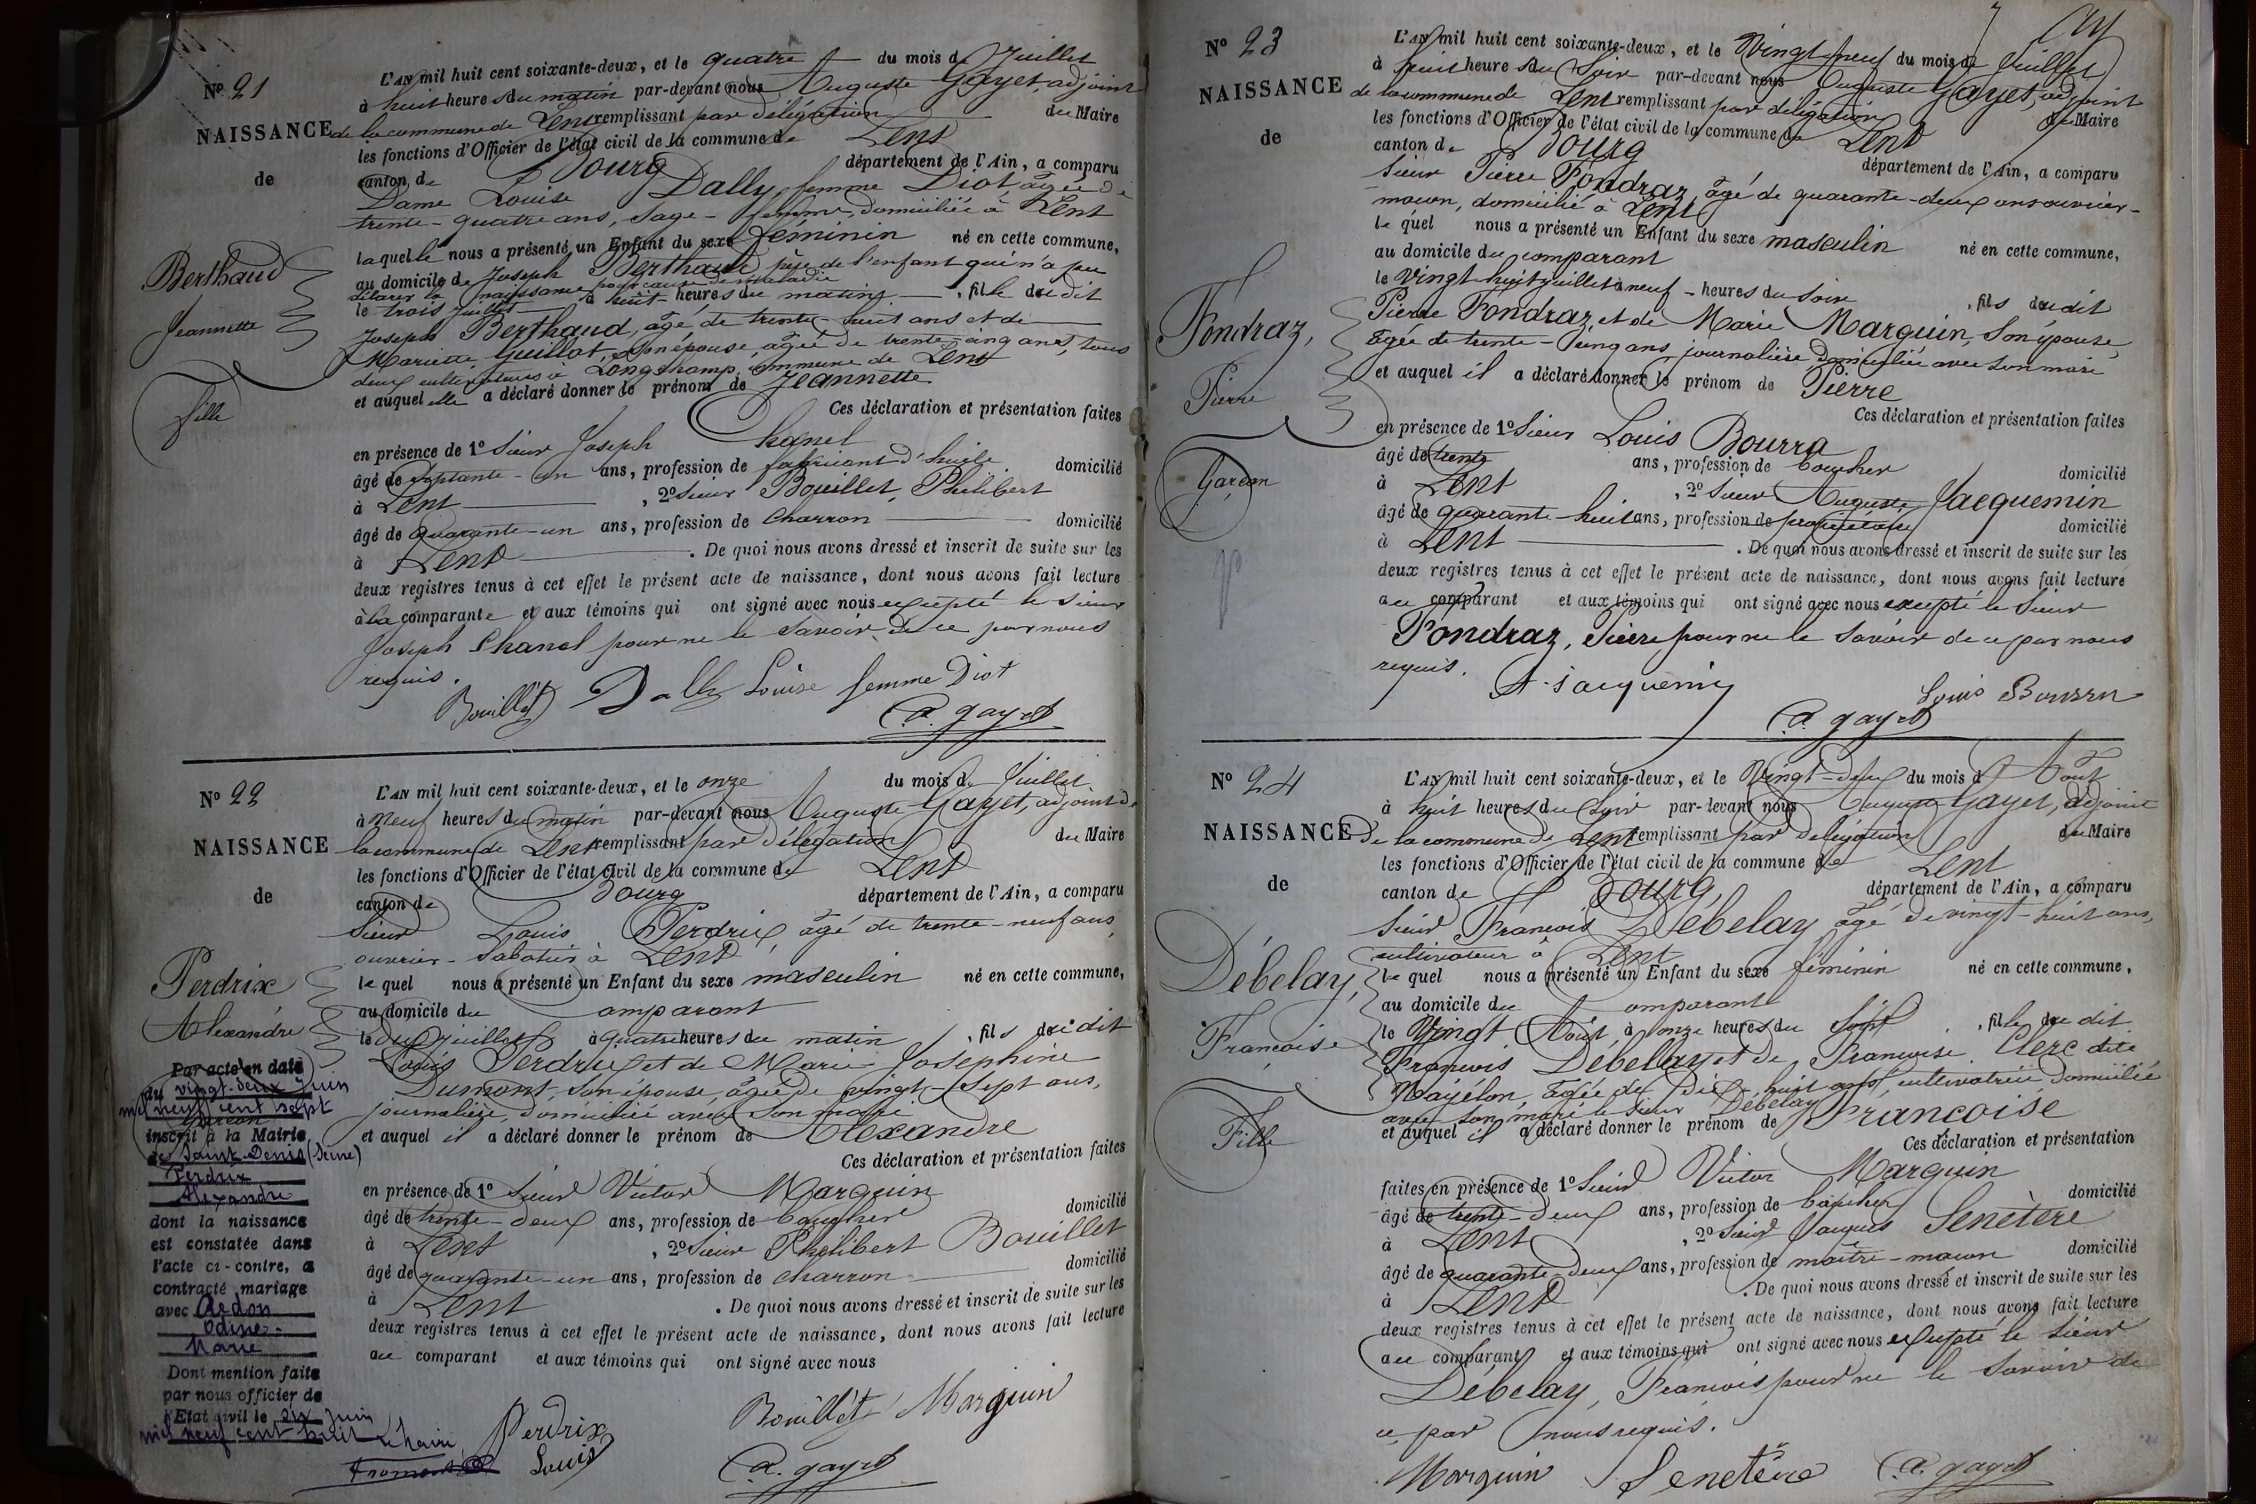 Nº 21
NAISSANCE
de
Berthaud
Jeannette
Fille
L'AN mil huit cent soixante-deux, et le quatre du mois de Juillet
à huit heures du matin par-devant nous Auguste Gayet, adjoint
de la commune de Lent remplissant par délégation du Maire
les fonctions d'Officier de l'état civil de la commune de Lent
canton de Bourg département de l'Ain, a comparu
Dame Louise Dally, femme Diot, âgée de
trente-quatre ans, sage-femme, domiciliée à Lent
laquelle nous a présenté un Enfant du sexe féminin né en cette commune,
au domicile de Joseph Berthaud père de l'enfant qui n'a pu
déclarer la naissance pour cause de maladie
le trois Juillet à huit heures du matin, fille dudit
Joseph Berthaud, âgé de trente-huit ans et de
Mariette Guillot, son épouse, âgée de trente-cinq ans, tous
deux cultivateurs à Longchamp, commune de Lent
et auquel elle a déclaré donner le prénom de Jeannette
Ces déclaration et présentation faites
en présence de 1º Sieur Joseph Chanel
âgé de septante-un ans, profession de fabricant d'huile domicilié
à Lent, 2º Sieur Bouillet, Philibert
âgé de quarante-un ans, profession de charron domicilié
à Lent. De quoi nous avons dressé et inscrit de suite sur les
deux registres tenus à cet effet le présent acte de naissance, dont nous avons fait lecture
à la comparante et aux témoins qui ont signé avec nous excepté le sieur
Joseph Chanel pour ne le savoir de ce par nous
requis.
Bouillet Dally Louise femme Diot
A. gayet
Nº 22
NAISSANCE
de
Perdrix
Alexandre
Garçon
Par acte en date
du vingt-deux Juin
mil neuf cent sept
inscrit à la Mairie
de Saint-Denis (Seine)
Perdrix
Alexandre
dont la naissance
est constatée dans
l'acte ci-contre, a
contracté mariage
avec Redon
Odine
Marie
Dont mention faite
par nous officier de
l'Etat civil le six Juin
mil neuf cent huit
L'AN mil huit cent soixante-deux, et le onze du mois de Juillet
à neuf heures du matin par-devant nous Auguste Gayet, adjoint de
la commune de Lent remplissant par délégation du Maire
les fonctions d'Officier de l'état civil de la commune de Lent
canton de Bourg département de l'Ain, a comparu
Sieur Louis Perdrix âgé de trente-neuf ans
ouvrier-sabotier à Lent
lequel nous a présenté un Enfant du sexe masculin né en cette commune,
au domicile du comparant
le dix Juillet à quatre heures du matin, fils dudit
Louis Perdrix et de Marie Josephine
Dumont, son épouse, âgée de vingt-sept ans,
journalière, domiciliée avec son mari
et auquel il a déclaré donner le prénom de Alexandre
Ces déclaration et présentation faites
en présence de 1º Sieur Victor Marguin
âgé de trente-deux ans, profession de boucher domicilié
à Lent, 2º Sieur Philibert Bouillet
âgé de quarante-un ans, profession de charron domicilié
à Lent. De quoi nous avons dressé et inscrit de suite sur les
deux registres tenus à cet effet le présent acte de naissance, dont nous avons fait lecture
au comparant et aux témoins qui ont signé avec nous
Perdrix Louis Bouillet Marguin
A. gayet
Nº 23
NAISSANCE
de
Fondraz,
Pierre
Garçon
L'AN mil huit cent soixante-deux, et le Vingt-neuf du mois de Juillet
à huit heure du Soir par-devant nous Auguste Gayet, adjoint
de la commune de Lent remplissant par délégation du Maire
les fonctions d'Officier de l'état civil de la commune de Lent
canton de Bourg département de l'Ain, a comparu
Sieur Pierre Fondraz, âgé de quarante-deux ans ouvrier-
maçon, domicilié à Lent
lequel nous a présenté un Enfant du sexe masculin né en cette commune,
au domicile du comparant
le Vingt-huit Juillet à neuf heures du Soir, fils dudit
Pierre Fondraz et de Marie Marguin, Son épouse,
âgée de trente-cinq ans, journalière domiciliée avec son mari
et auquel il a déclaré donner le prénom de Pierre
Ces déclaration et présentation faites
en présence de 1º Sieur Louis Bourra
âgé de trente ans, profession de boucher domicilié
à Lent, 2º Sieur Auguste Jacquemin
âgé de quarante-huit ans, profession de propriétaire domicilié
à Lent. De quoi nous avons dressé et inscrit de suite sur les
deux registres tenus à cet effet le présent acte de naissance, dont nous avons fait lecture
au comparant et aux témoins qui ont signé avec nous excepté le Sieur
Fondraz, Pierre pour ne le savoir de ce par nous
requis.
A. Jacquemin Louis Bourra
A. gayet
Nº 24
NAISSANCE
de
Débelay,
Françoise
Fille
L'AN mil huit cent soixante-deux, et le Vingt-deux du mois d'Août
à huit heures du Soir par-devant nous Auguste Gayet, adjoint
de la commune de Lent remplissant par délégation du Maire
les fonctions d'Officier de l'état civil de la commune de Lent
canton de Bourg, département de l'Ain, a comparu
Sieur François Débelay âgé de vingt-huit ans,
cultivateur à Lent
lequel nous a présenté un Enfant du sexe féminin né en cette commune,
au domicile du comparant
le Vingt Août, à onze heures du Soir, fille dudit
François Débelay et de Françoise Clerc dite
Mayélon, âgée de dix-huit ans, cultivatrice domiciliée
avec son mari le sieur Débelay
et auquel il a déclaré donner le prénom de Françoise
Ces déclaration et présentation
faites en présence de 1º Sieur Victor Marguin
âgé de trente-deux ans, profession de boucher domicilié
à Lent, 2º Sieur Jacques Senetère
âgé de quarante-deux ans, profession de maître-maçon domicilié
à Lent. De quoi nous avons dressé et inscrit de suite sur les
deux registres tenus à cet effet le présent acte de naissance, dont nous avons fait lecture
au comparant et aux témoins qui ont signé avec nous excepté le Sieur
Débelay, François pour ne le savoir de
ce par nous requis.
Marguin Senetère A. gayet